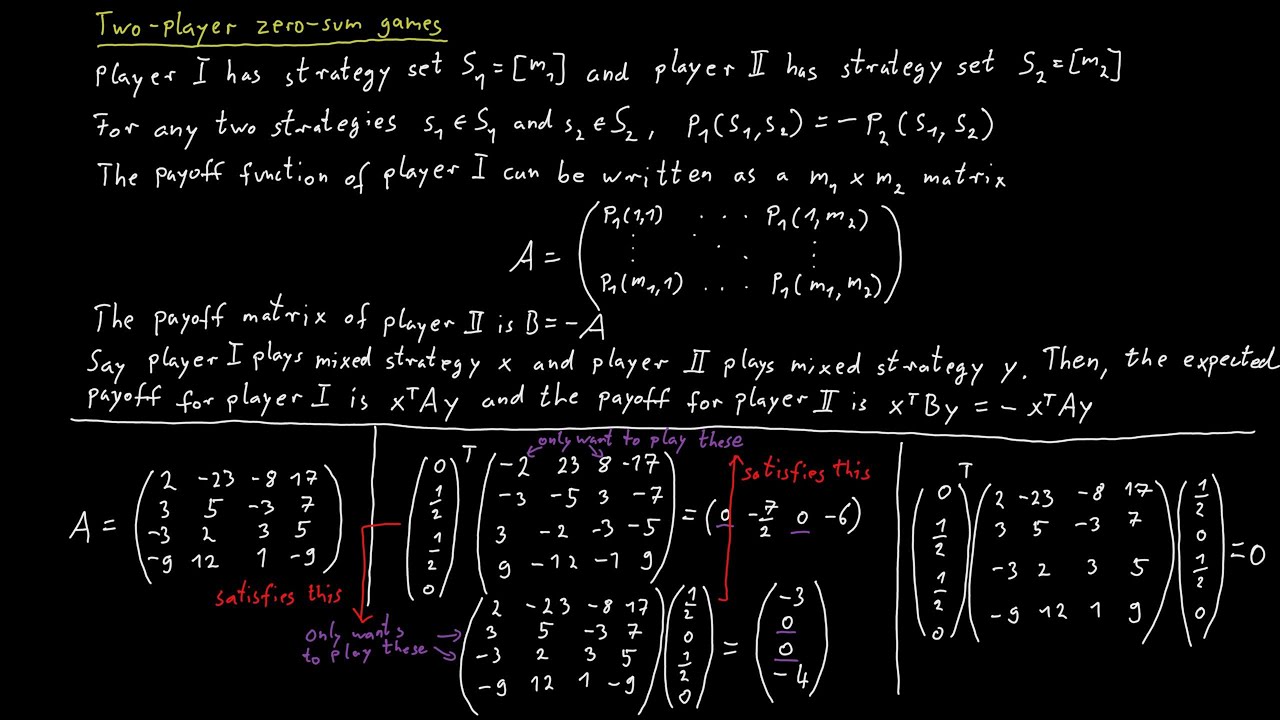 Two-player zero-sum games
Player I has strategy set S₁=[m₁] and player II has strategy set S₂=[m₂]
For any two strategies s₁∈S₁ and s₂∈S₂, P₁(s₁,s₂)=-P₂(s₁,s₂)
The payoff function of player I can be written as a m₁ x m₂ matrix
P₁(1,1) ... P₁(1,m₂)
A =
P₁(m₁,1) ... P₁(m₁,m₂)
The payoff matrix of player II is B=-A
Say player I plays mixed strategy x and player II plays mixed strategy y. Then, the expected
payoff for player I is xᵀAy and the payoff for player II is xᵀBy = -xᵀAy
A =
2 -23 -8 17
3 5 -3 7
-3 2 3 5
-9 12 1 -9
only want to play these
0 1/2 1/2 0
T
-2 23 8 -17
-3 -5 3 -7
3 -2 -3 -5
9 -12 -1 9
= (0 -7/2 0 -6)
satisfies this
satisfies this
only wants
to play these
2 -23 -8 17
3 5 -3 7
-3 2 3 5
-9 12 1 -9
1/2 0 1/2 0
=
-3
0
0
-4
0 1/2 1/2 0
T
2 -23 -8 17
3 5 -3 7
-3 2 3 5
-9 12 1 9
1/2 0 1/2 0
=0